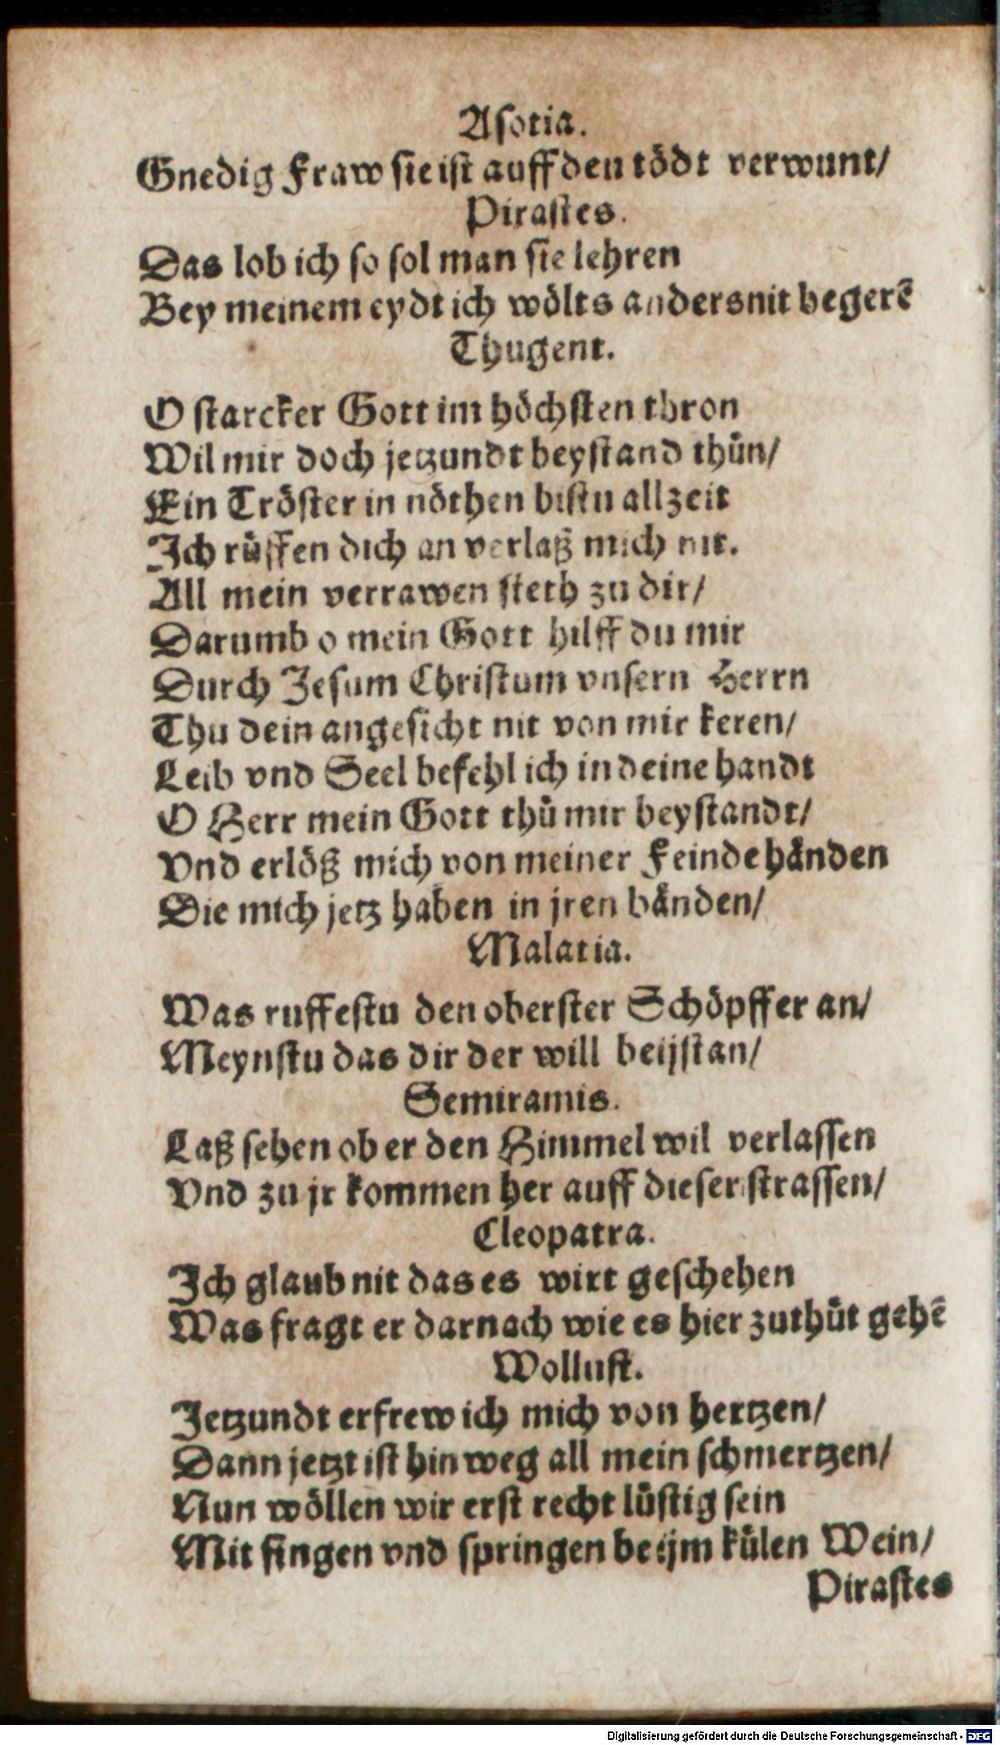 Asotia.
Gnedig Fraw sie ist auff den tödt verwunt/
Pirastes.
Das lob ich so sol man sie lehren
Bey meinem eydt ich wölts anders nit begerẽ
Thugent.
O starcker Gott im höchsten thron
Wil mir doch jetzundt beystand thůn/
Ein Tröster in nöthen bistu allzeit
Ich růffen dich an verlaß mich nit.
All mein verrawen steth zu dir/
Darumb o mein Gott hilff du mir
Durch Jesum Christum vnsern Herrn
Thu dein angesicht nit von mir keren/
Leib vnd Seel befehl ich in deine handt
O Herr mein Gott thů mir beystandt/
Vnd erlöß mich von meiner Feinde hånden
Die mich jetz haben in jren bånden/
Malatia.
Was ruffestu den oberster Schöpffer an/
Meynstu das dir der will beijstan/
Semiramis.
Laß sehen ob er den Himmel wil verlassen
Vnd zu jr kommen her auff dieser strassen/
Cleopatra.
Ich glaub nit das es wirt geschehen
Was fragt er darnach wie es hier zuthůt gehẽ
Wollust.
Jetzundt erfrew ich mich von hertzen/
Dann jetzt ist hinweg all mein schmertzen/
Nun wöllen wir erst recht lůstig sein
Mit singen vnd springen beijm kůlen Wein/
Pirastes
Digitalisierung gefördert durch die Deutsche Forschungsgemeinschaft - DFG